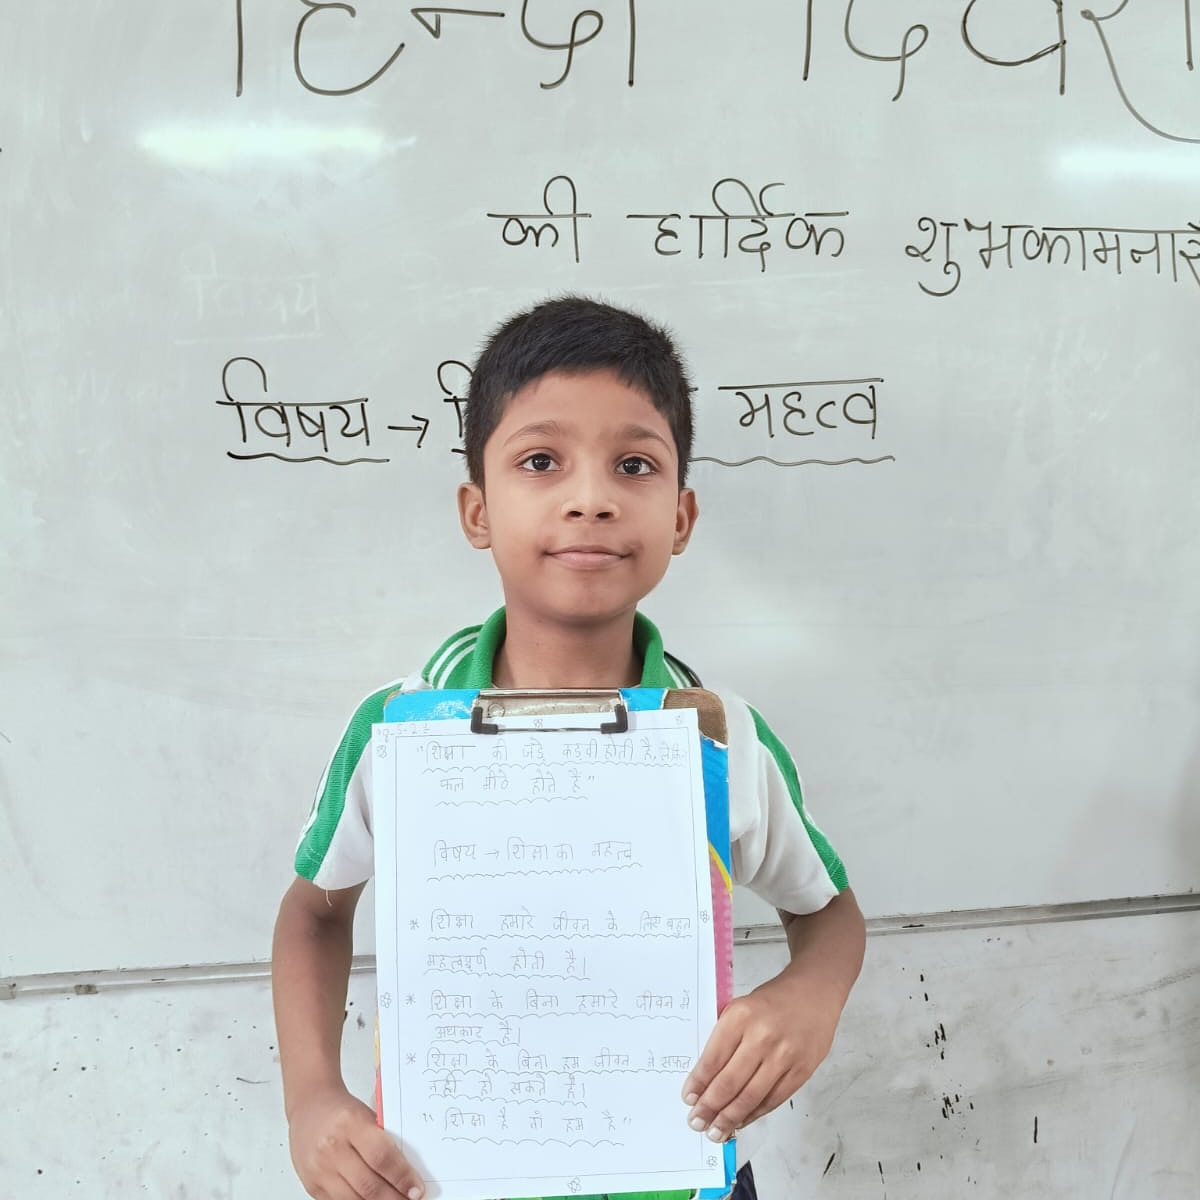 हिन्दी दिवस
की हार्दिक शुभकामनाएं
विषय → महत्व
"शिक्षा की जड़े कड़वी होती है,
फल मीठे होते है"
विषय → शिक्षा का महत्व
* शिक्षा हमारे जीवन के लिए बहुत
महत्वपूर्ण होती है।
* शिक्षा के बिना हमारे जीवन में
अधकार है।
* शिक्षा के बिना हम जीवन मे सफल
नही हो सकते है।
" शिक्षा है तो हम है "